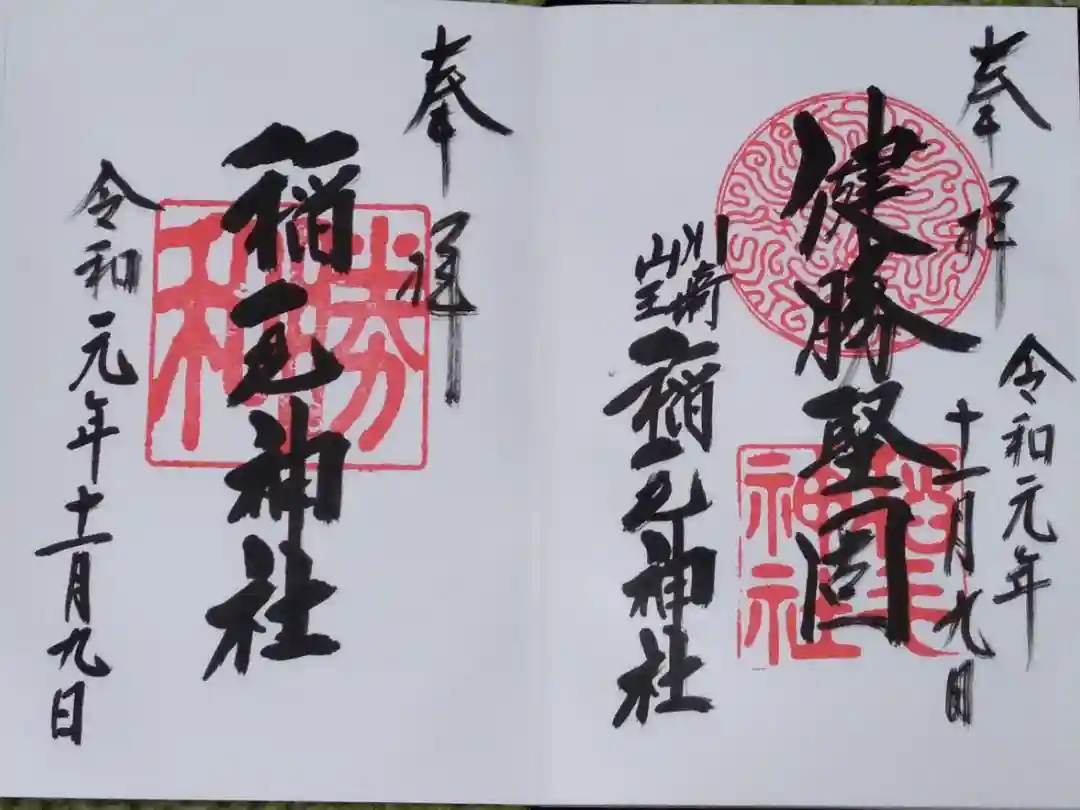 奉拝
健勝堅固
令和元年
十一月九日
川崎
山王
稲毛神社
稲毛
神社
奉拝
稲毛神社
令和元年十一月九日
勝利